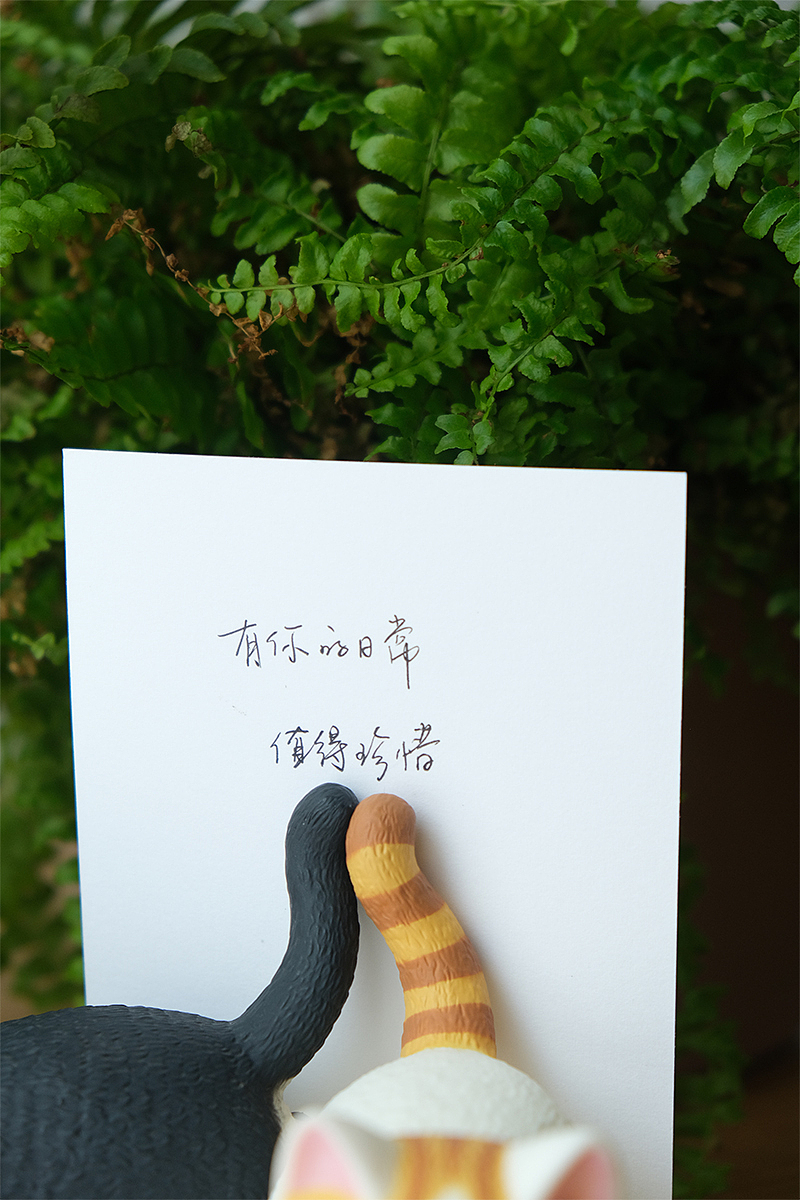 有你的日常
值得珍惜